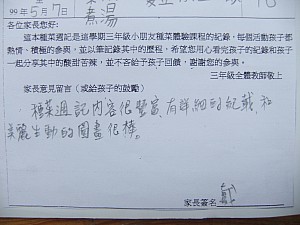 99年5月7日
煮湯
各位家長您好：
這本種菜週記是這學期三年級小朋友種菜體驗課程的紀錄，每個活動孩子都
熱情、積極的參與，並以筆紀錄其中的歷程，希望您用心看完孩子的紀錄和孩子
一起分享其中的酸甜苦辣，並不吝給予孩子回饋，謝謝您的參與。
三年級全體教師敬上
家長意見留言（或給孩子的鼓勵）
種菜週記內容很豐富，有詳細的記載，和
美麗生動的圖畫很棒。
家長簽名